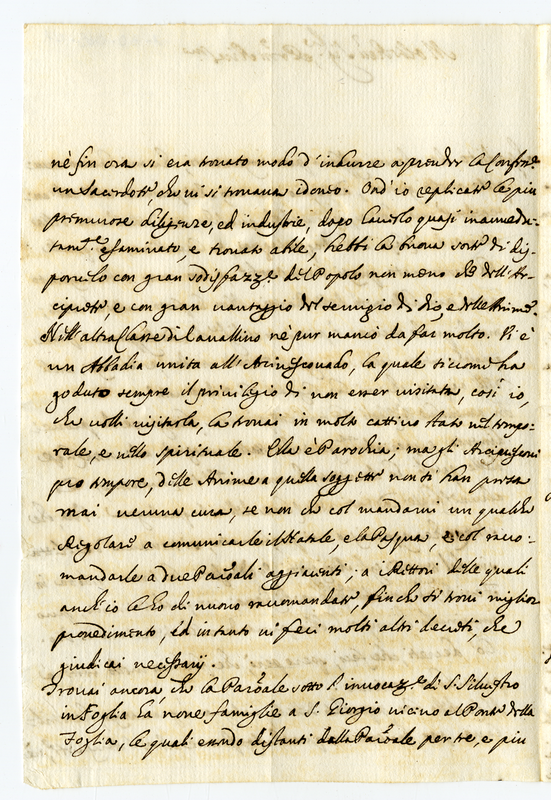 nè fin ora si era trovato modo d'indurre a prender la Confess.e
un Sacerdote, che vi si trovava idoneo. Ond'io replicate le più
premurose diligenze, ed industrie, dopo haverlo quasi inavvedu-
tam.te esaminato, e trovato abile, hebbi la buona sorte di dis-
porvelo con gran sodisfazz.e del Popolo non meno che dell'Ar-
ciprete, e con gran vantaggio del servigio di dio, e delle Anime.
Nell'altra Classe di Cavallino nè pur mancò da far molto. Vi è
un Abbadia unita all'Arcivescovado, la quale siccome ha
goduto sempre il privilegio di non esser visitata, così io,
che volli visitarla, la trovai in molto cattivo stato nel tempo-
rale, e nello spirituale. Ella è Parochia; ma gli Arcivescovi
pro tempore, delle Anime a quella soggette non si han presa
mai veruna cura, se non che col mandarvi un qualche
Regolare a comunicarle il Natale, e la Pasqua, e col racco-
mandarle a due Paro.ali aggiacenti; a i Rettori delle quali
anch'io le ho di nuovo raccomandate, finche si trovi miglior
provedimento, ed intanto vi feci molti altri decreti, che
giudicai necessarij.
Trovai ancora, che la Paro.ale sotto l'invocaz.e di S. Silvestro
in Foglia ha nove famiglie a S. Giorgio vicino al Ponte della
Foglia, le quali essendo distanti dalla Paro.ale per tre, e più